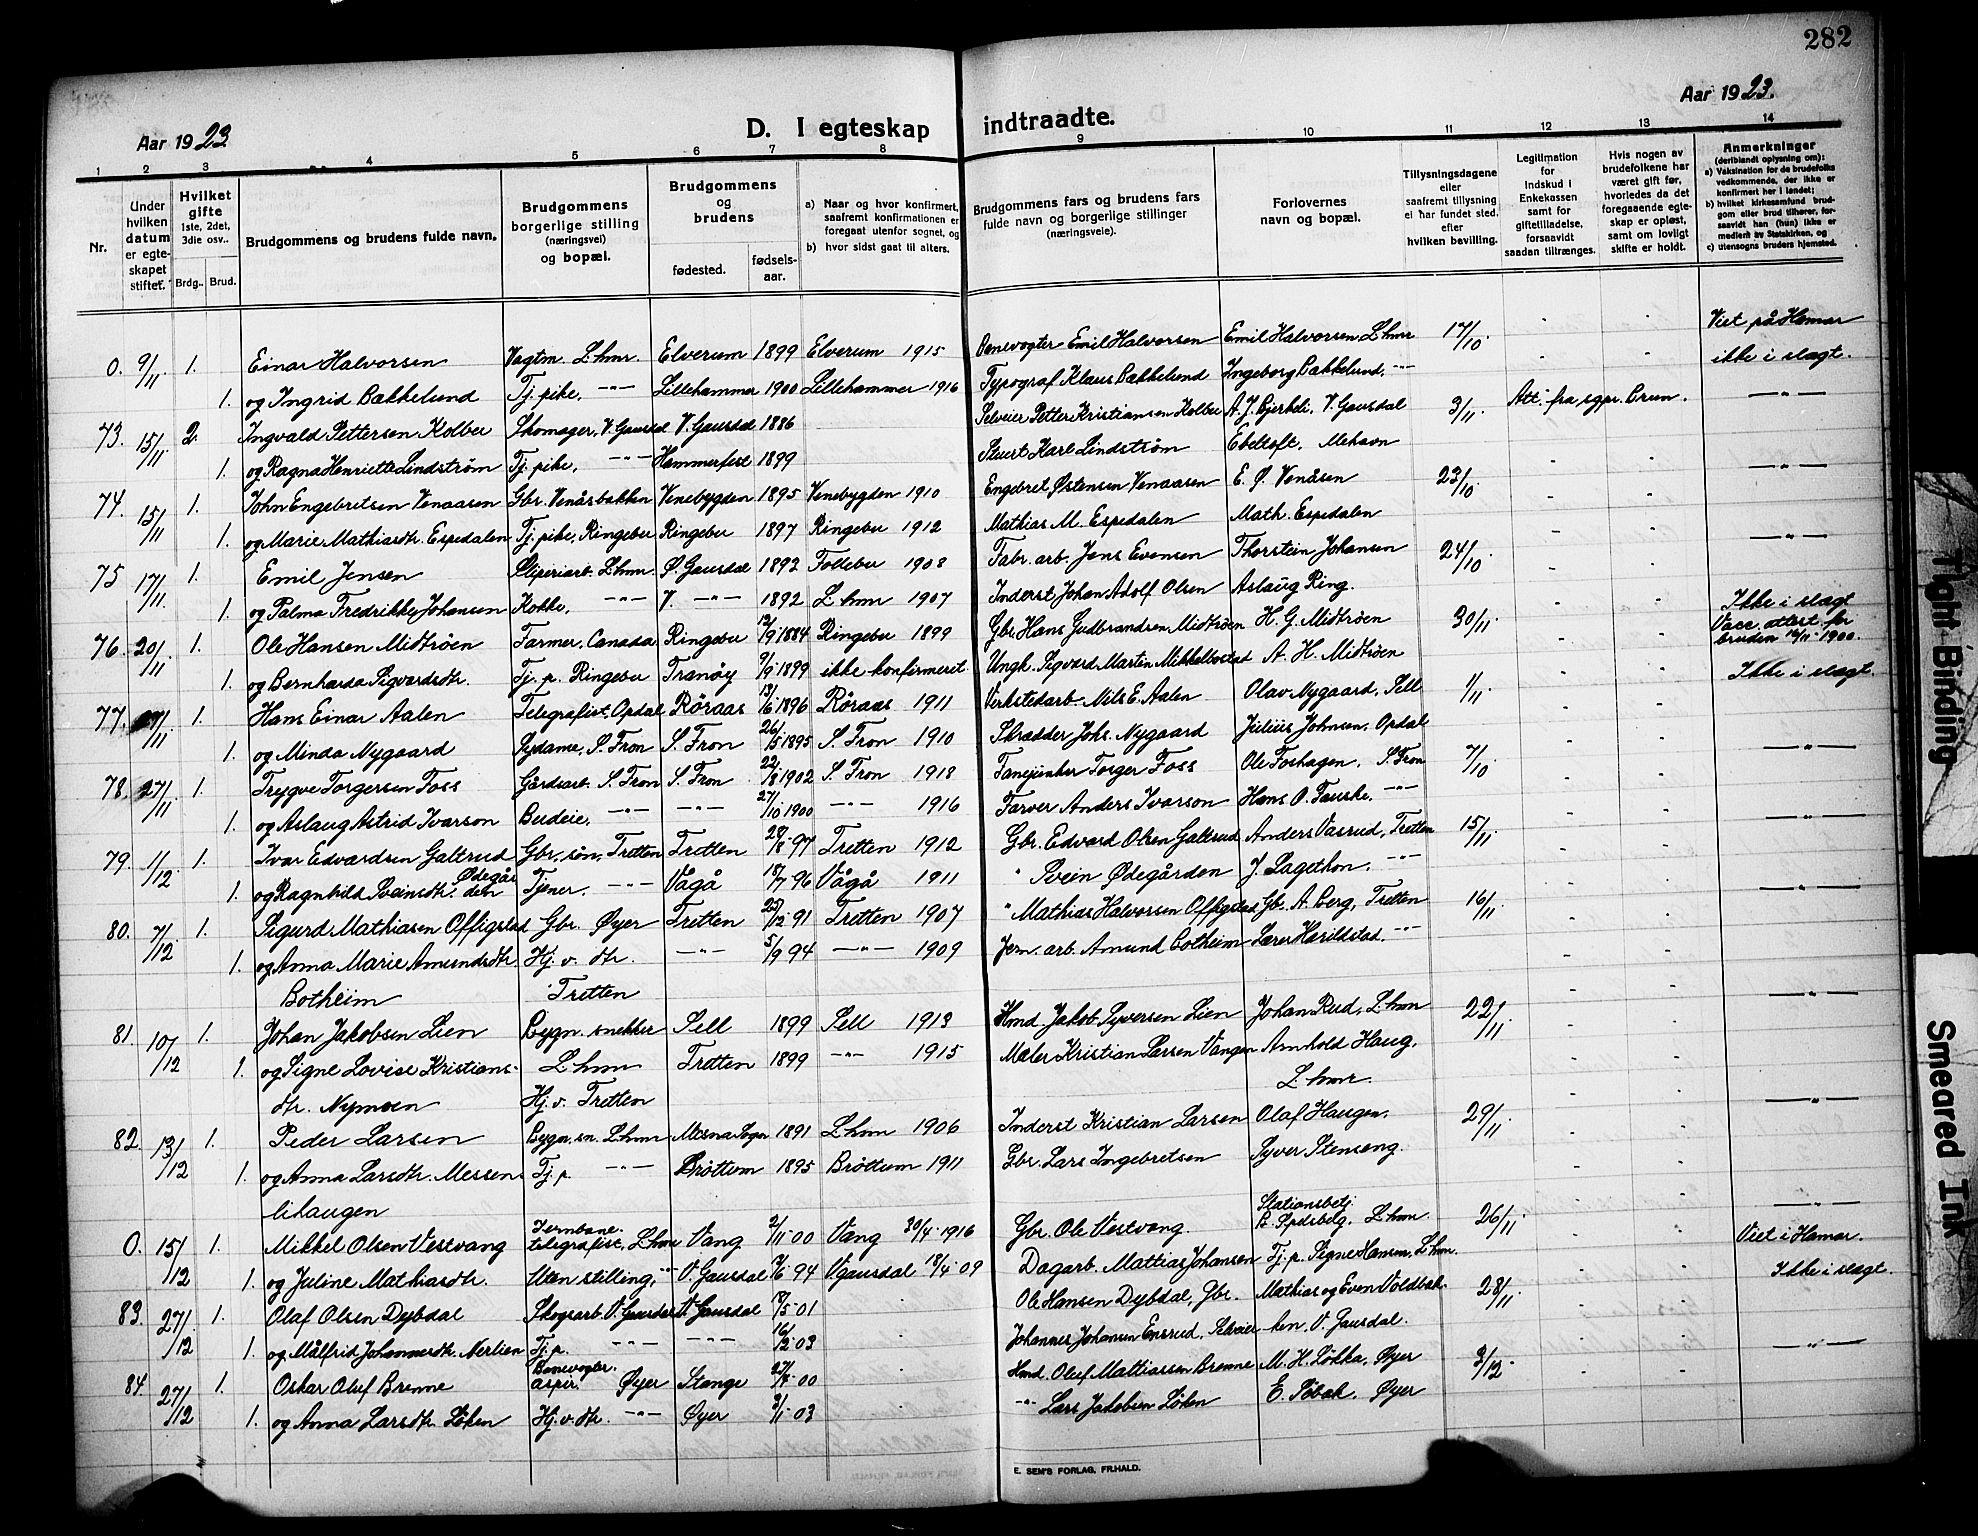 282
Aar 1923
D. I egteskap indtraadte.
Aar 1923.
1 2 3 4 5 6 7 8 9 10 11 12 13 14
Nr.
Under hvilken datum er egteskapet stiftet.
Hvilket gifte 1ste, 2det, 3die osv..
Brdg.. Brud.
Brudgommens og brudens fulde navn.
Brudgommens borgerlige stilling (næringsvei) og bopæl.
Brudgommens og brudens
fødested. fødselsaar.
a) Naar og hvor konfirmert, saafremt konfirmationen er foregaat utenfor sognet, og
b) hvor sidst gaat til alters.
Brudgommens fars og brudens fars fulde navn og borgerlige stillinger (næringsveie).
Forlovernes navn og bopæl.
Tillysningsdagene eller saafremt tillysning ei har fundet sted, efter hvilken bevilling.
Legitimation for Indskud i Enkekassen samt for giftetilladelse, forsaavidt saadan tiltrænges.
Hvis nogen av brudefolkene har været gift før, hvorledes da det foregaaende egteskap er opløst, samt om lovligt skifte er holdt.
Anmerkninger (deriblandt oplysning om):
a) Vaksination for de brudefolks vedkommende, der ikke er konfirmert her i landet;
b) hvilket kirkesamfund brudgom eller brud tilhører, forsaavidt han (hun) ikke er medlem av Statskirken, og
c) utensogns bruders hjemsted.
0. 9/11. 1. Einar Halvorsen Vagtm. L.hmr. Elverum 1899 Elverum 1915 Banevogter Emil Halvorsen Emil Halvorsen L.hmr 17/10. Viet på Hamar
1. og Ingrid Bækkelund Tj. pike, -"- Lillehammer 1900 Lillehammer 1916 Typograf Klaus Bækkelund Ingeborg Bækkelund, -"- ikke i slagt.
73. 15/11 2. Ingvald Pettersen Kolbu Skomager, V. Gausdal V. Gausdal 1886 Selveier Petter Kristiansen Kolbu A. J. Bjerkeli, V. Gausdal 3/11. Att. fra sgpr. Brun. -"-
1. og Ragna Henriette Lindström Tj. pike, -"- Hammerfest 1899 Stuert Karl Lindström Ebeltoft, Mehavn
74. 15/11 1. John Engebretsen Venaasen Gbr. Venåsbakken Venebygden 1895 Venebygden 1910 Engebret Østensen Venaasen E. Ø. Venåsen 23/10. -"-
1. og Marie Mathiasdtr. Espedalen Tj. pike, Ringebu Ringebu 1897 Ringebu 1912 Mathias M. Espedalen Math. Espedalen
75 17/11. 1. Emil Jensen Sliperiarb. L.hmr. S. Gausdal 1892 Follebu 1908 Fabr. arb. Jens Evensen Thorstein Johansen 24/10. -"-
1. og Palma Fredrikke Johansen Kokke, -"- V. -"- 1892 L.hmr 1907 Inderst Johan Adolf Olsen Aslaug Ring.
76. 20/11 1. Ole Hansen Midtröen Farmer, Canada Ringebu 12/9 1884 Ringebu 1899 Gbr. Hans Gudbrandsen Midtröen H. G. Midtröen 30/11. Ikke i slagt Vacc. attest for bruden 16/11-1900.
1. og Bernharda Sigvardsdtr. Tj. p. Ringebu Tranöy 9/9 1899 ikke konfirmeret. Ungk. Sigvard Martin Mikkelbostad A. H. Midtröen
77. 27/11 1. Hans Einar Aalen Telegrafist, Opdal Röraas 13/6 1896 Röraas 1911 Verkstedarb. Nils E. Aalen Olav Nygaard, Sell 1/11. Ikke i slagt.
1. og Minda Nygaard Sydame, S. Fron S. Fron 26/5 1895 S. Fron 1910 Skrædder Johs. Nygaard Julius Johnsen, Opdal
78. 27/11. 1. Trygve Torgersen Foss Gårdsarb. S. Fron S. Fron 22/8 1902 S. Fron 1918 Fanejunker Torger Foss Ole Foshagen, S. Fron 7/10. -"-
1. og Aslaug Astrid Ivarson Budeie, -"- -"- 27/10 1900 -"- 1916 Farver Anders Ivarson Hans O. Fauske, -"-
79. 1/12. 1. Ivar Edvardsen Galtrud Gbr. sön, Tretten Tretten 28/8 97 Tretten 1912 Gbr. Edvard Olsen Galtrud Anders Vasrud, Tretten 15/11. -"-
1. og Ragnhild Sveinsdtr. Ødegården Tjener, -"- Vågå 18/7 96 Vågå 1911 " Svein Ødegården J. Lagethon, -"-
80. 7/12 1. Sigurd Mathiasen Offigstad Gbr. Øyer Tretten 25/12 91 Tretten 1907 " Mathias Halvorsen Offigstad Gbr. A. Berg, Tretten 16/11. -"-
1. og Anna Marie Amundsdtr. Hj. v. dtr. -"- 5/9 94 -"- 1909 Jern. arb. Amund Botheim Lærer Harildstad, -"-
Botheim Tretten
81. 10/12 1. Johan Jakobsen Lien Bygn. snekker Sell 1899 Sell 1913 Hmd. Jakob Syversen Lien Johan Rud, L.hmr 22/11. -"-
1. og Signe Lovise Kristians- L.hmr Tretten 1899 -"- 1915 Maler Kristian Larsen Vangen Arnhold Haug,
dtr. Nymoen Hj. v. Tretten L.hmr.
82. 13/12 1. Peder Larsen Bygn. sn. L.hmr Mesna Sogn 1891 L.hmr 1906 Inderst Kristian Larsen Olaf Haugen. 29/11. -"-
1. og Anna Larsdtr. Messen- Tj. p. -"- Bröttum 1895 Bröttum 1911 Gbr. Lars Ingebretsen Syver Stenseng.
lihaugen
0. 15/12 1. Mikkel Olsen Vestvang Jernbanetelegrafist, L.hmr Vang 2/11 00 Vang 30/4 1916 Gbr. Ole Vestvang. Stationsbetj. L.hmr. 26/11. -"- Viet i Hamar.
1. og Juline Mathiasdtr. Uten stilling, -"- V. Gausdal 94 V. Gausdal 18/4 09 Dagarb. Mattias Johansen Tj. p. Signe Hansen, L.hmr. Ikke i slagt.
83. 27/12 1. Olaf Olsen Dybdal Skogsarb. V. Gausdal V. Gausdal 01 Ole Hansen Dybdal, Gbr. Mathias og Even Voldbak- 28/11.
1. og Målfrid Johannesdtr. Nerlien Tj. p. -"- -"- 16/2 03 Johannes Johansen Ensrud, Selveier ken, V. Gausdal. -"-
84. 27/12 1. Oskar Oluf Brenne Banevogter aspir. Øyer Stange 00 Hmd. Oluf Mattiassen Brenne M. H. Løkka, Øyer 3/12.
1. og Anna Larsdtr. Løken Hj. v. dtr. -"- Øyer 03 -"- Lars Jakobsen Löken E. Söbak, Øyer
E. SEM'S FORLAG, FR.HALD.
Tight Binding
Smeared Ink